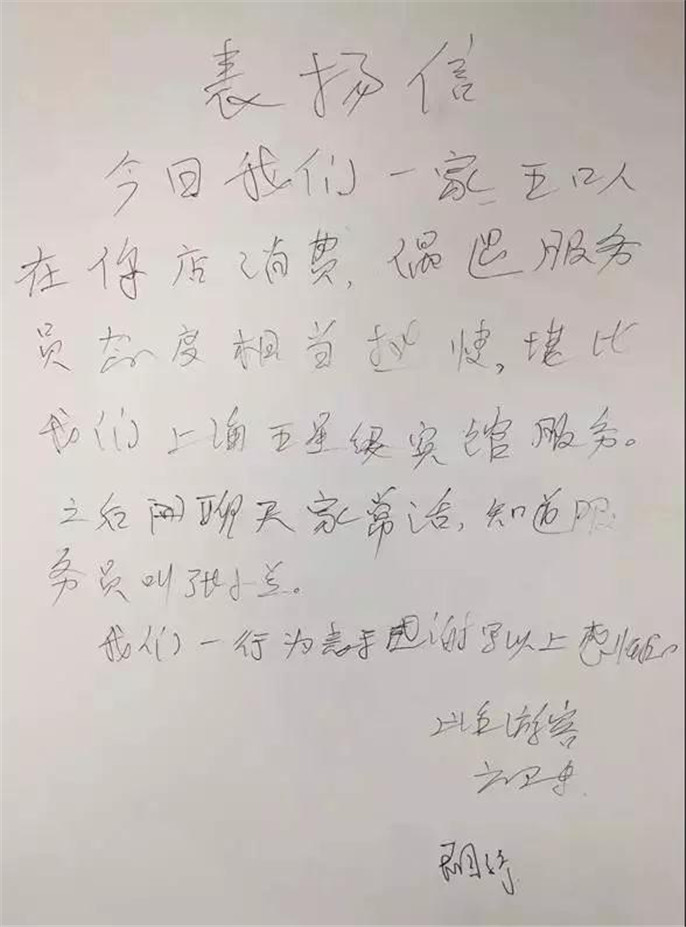 表扬信
今回我们一家五口人
在你店消费,偶遇服务
员态度相当愉快,堪比
我们上海五星级宾馆服务。
之后闲聊天家常话,知道服
务员叫张小兰。
我们一行为表示感谢写以上
游客